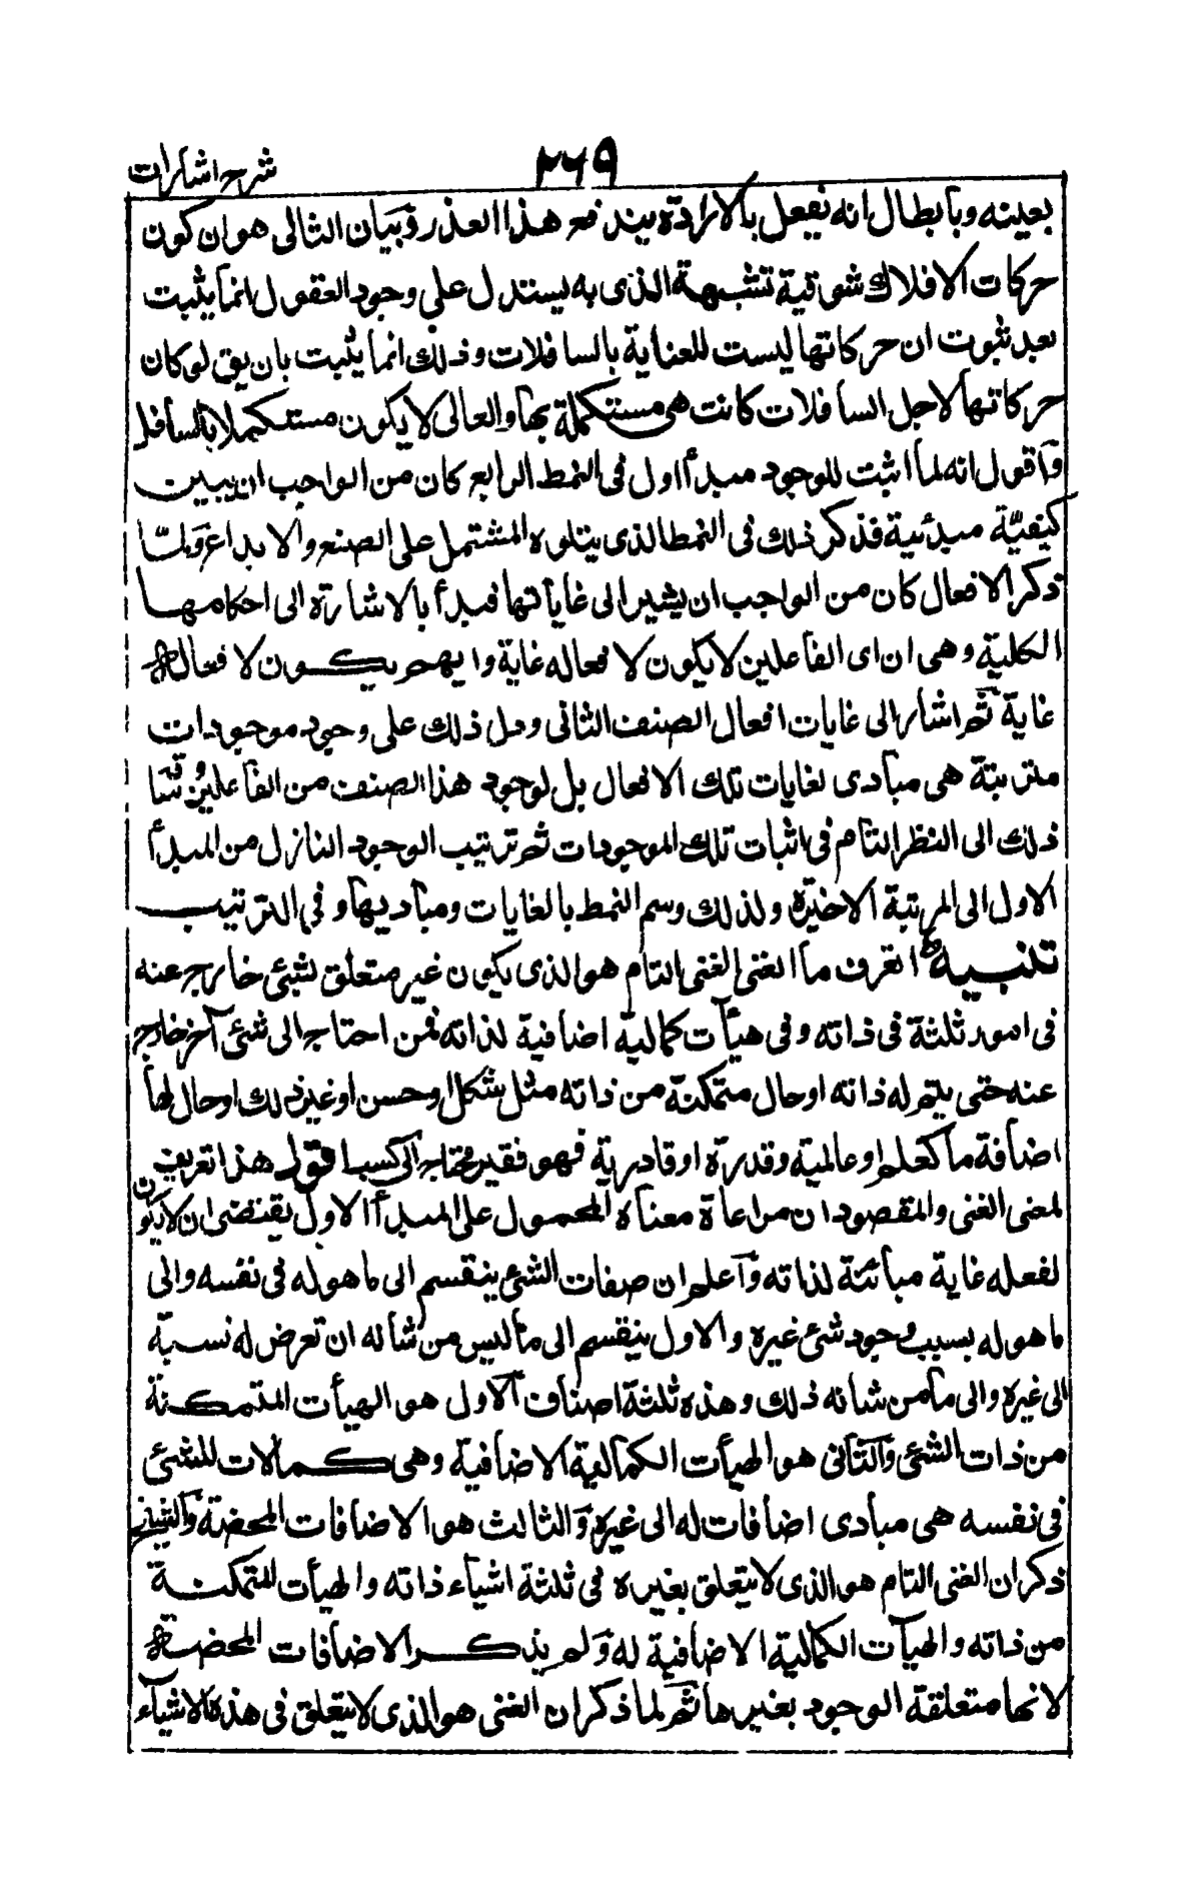 شرح اشارات
٢٦٩
بعينه وبابطال انه يفعل بالارادة يندفع هذا العذر وبيان الثالى هو ان كون
حركات الافلاك شوقية تشبهية الذى به يستدل على وجود العقول انما يثبت
بعد ثبوت ان حركاتها ليست للعناية بالسافلات وذلك انما يثبت بان يق لو كان
حركاتها لاجل السافلات كانت هى مستكملة بها والعالى لا يكون مستكملا بالسافل
وآقول انه لما اثبت للوجود مبدأ اول فى النمط الرابع كان من الواجب ان يبين
كيفيّة مبدئية فذكر ذلك فى النمط الذى يتلوه المشتمل على الصنع والابداع وَلمّا
ذكر الافعال كان من الواجب ان يشير الى غاياتها فبدأ بالاشارة الى احكامها
الكلية وهى ان اى الفاعلين لا يكون لافعاله غاية وايهم يكون لافعاله
غاية ثم اشار الى غايات افعال الصنف الثانى ودل ذلك على وجود موجودات
مترتبة هى مبادى لغايات تلك الافعال بل لوجود هذا الصنف من الفاعلين وساقه
ذلك الى النظر التام فى اثبات تلك الموجودات ثم ترتيب الوجود النازل من المبدأ
الاول الى المرتبة الاخيرة ولذلك وسم النمط بالغايات ومباديها وفى الترتيب
تنبيه اتعرف ما الغنى الغنى التام هو الذى يكون غير متعلق لشئ خارج عنه
فى امور ثلثة فى ذاته وفى هيأت كمالية اضافية لذاته فمن احتاج الى شئ آخر خارج
عنه حتى يتم له ذاته او حال متمكنة من ذاته مثل شكل او حسن او غير ذلك او حال لها
اضافة ما كعلم او عالمية وقدرة او قادرية فهو فقير محتاج الى كسب اقول هذا تعريف
لمعنى الغنى والمقصود ان مراعاة معناه المحمول على المبدأ الاول يقتضى ان لا يكون
لفعله غاية مباينة لذاته وآعلم ان صفات الشئ ينقسم الى ما هو له فى نفسه والى
ما هو له بسبب وجود شئ غيره والاول ينقسم الى ما ليس من شأنه ان تعرض له نسبة
الى غيره والى ما من شأنه ذلك وهذه ثلثة اصناف آلاول هو الهيأت المتمكنة
من ذات الشئ وآلثانى هو الهيأت الكمالية الاضافية وهى كمالات للشئ
فى نفسه هى مبادى اضافات له الى غيره وَالثالث هو الاضافات المحضة وآلشيخ
ذكر ان الغنى التام هو الذى لا يتعلق بغيره فى ثلثة اشياء ذاته والهيأت المتمكنة
من ذاته والهيآت الكمالية الاضافية له وَلم يذكر الاضافات المحضة
لانها متعلقة الوجود بغيرها ثم لما ذكر ان الغنى هو الذى لا يتعلق فى هذه الاشيآء